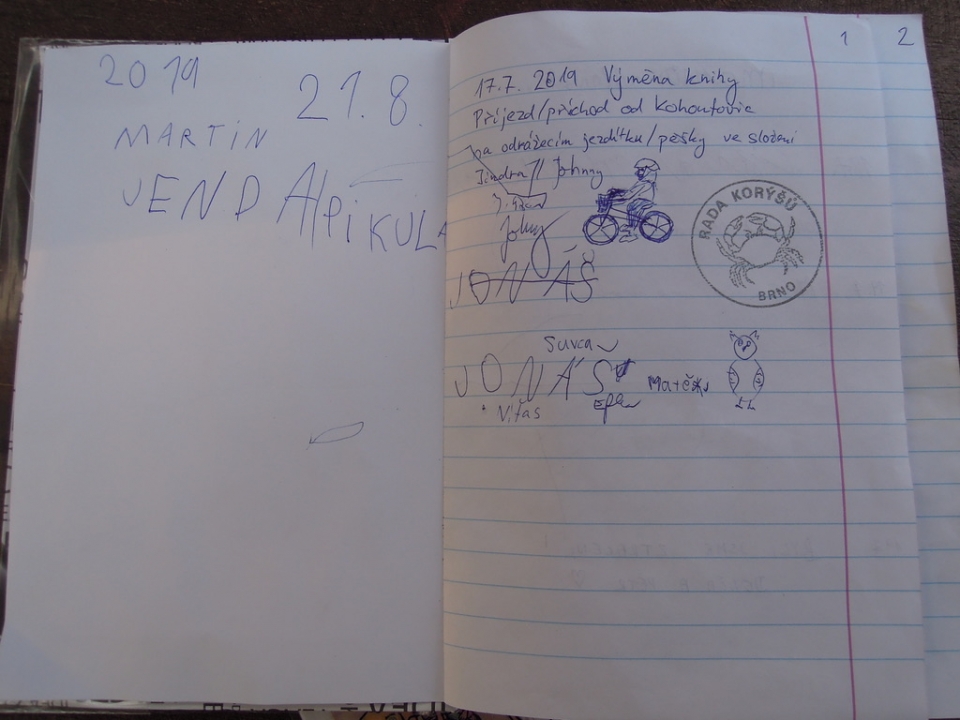 2019
21.8.
MARTIN
VENDA
1
2
17.7. 2019 Výměna knihy
Příjezd/příchod od Kohoutovic
na odrážecím jezdítku/pěšky ve složení
Jindra // Johnny
RADA KORÝŠŮ
BRNO
JONÁŠ
JONÁŠ
Vítas